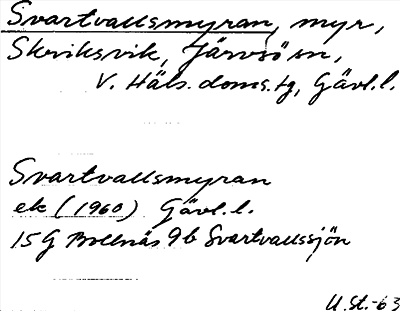 Svartvallsmyran, myr,
Skriksvik, Järvsö sn,
V. Häls. doms.tg, Gävl.l.
Svartvallsmyran
ek (1960) Gävl.l.
15G Bollnäs 9b Svartvallssjön
U.St.-63